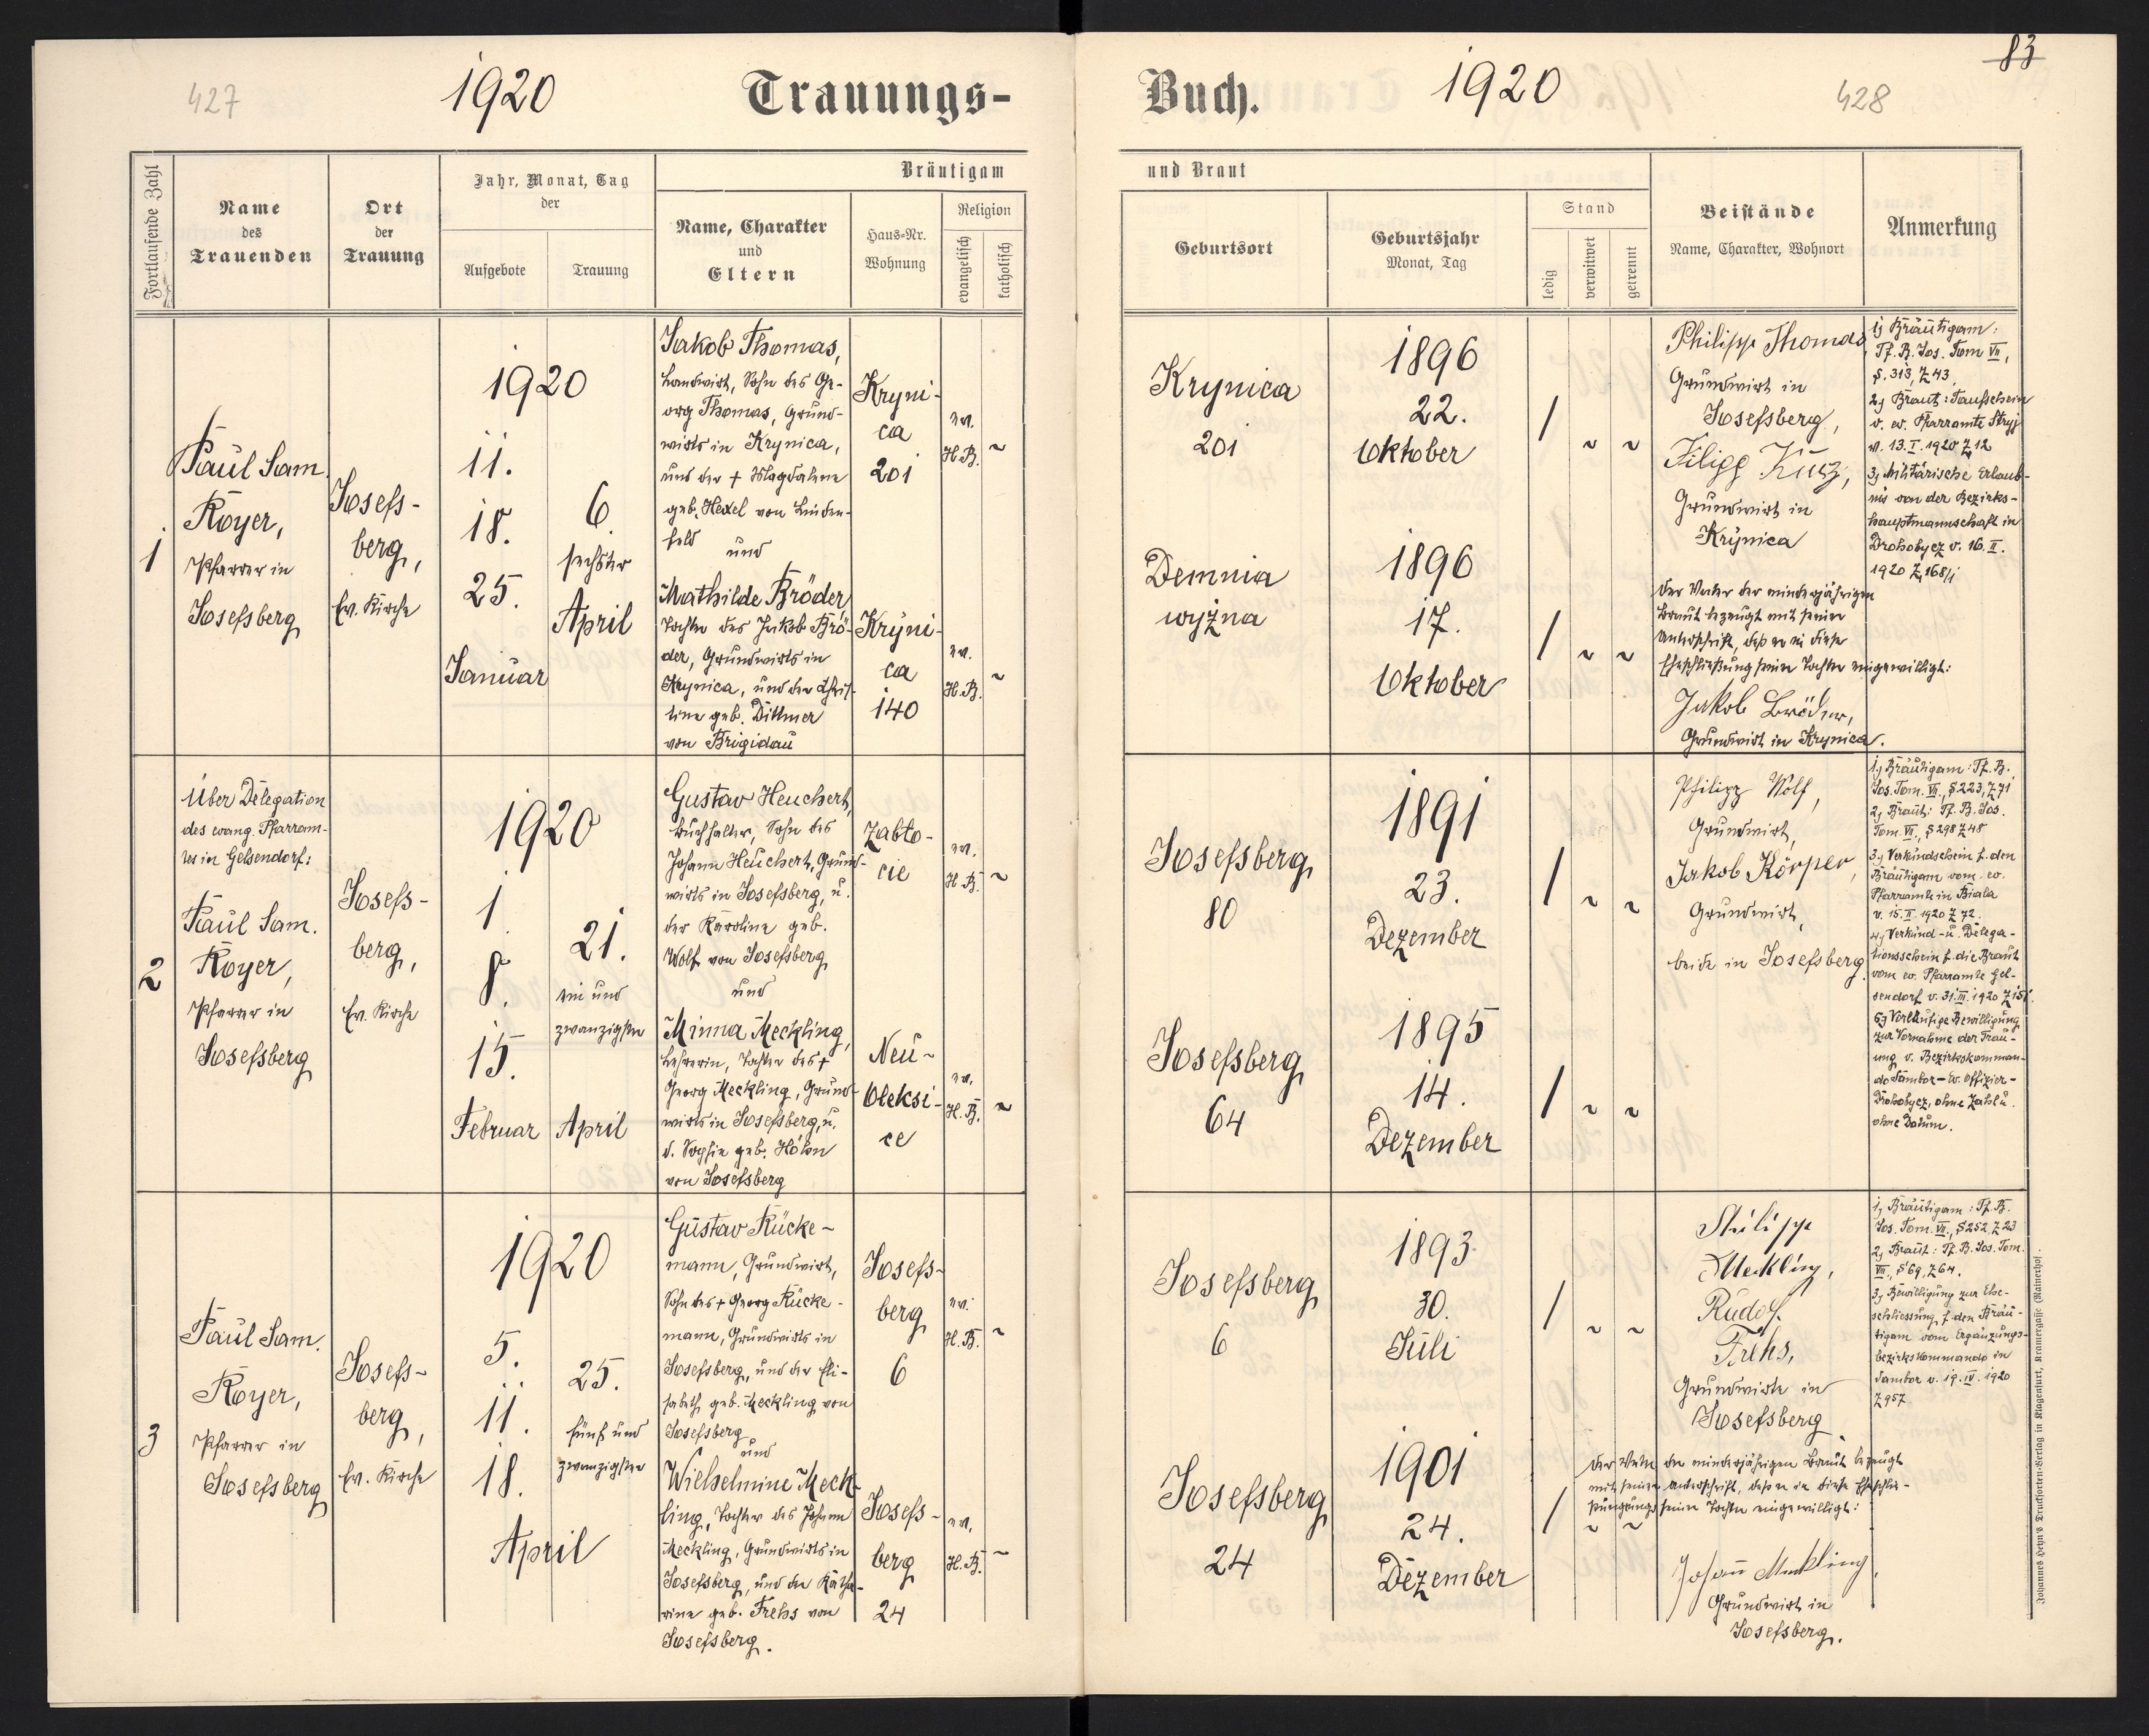 427
1920
Trauungs-
Buch.
1920
428
83
Fortlaufende Zahl
Name
des
Trauenden
Ort
der
Trauung
Jahr, Monat, Tag
der
Aufgebote
Trauung
Bräutigam
Name, Charakter
und
Eltern
Haus-Nr.
Wohnung
Religion
evangelisch
katholisch
und Braut
Geburtsort
Geburtsjahr
Monat, Tag
Stand
ledig
verwitwet
getrennt
Beistände
Name, Charakter, Wohnort
Anmerkung
1
Paul Sam.
Royer,
Pfarrer in
Josefsberg
Josefs-
berg,
Ev. Kirche
1920
11.
18.
25.
Januar
6
sechster
April
Jakob Thomas,
Landwirt, Sohn des Ge-
org Thomas, Grund-
wirts in Krynica,
und der + Magdalene
geb. Hexel von Linden-
feld
und
Mathilde Bröder,
Tochter des Jakob Brö-
der, Grundwirts in
Krynica, und der Chris-
tine geb. Dittmer
von Brigidau
Kryni-
ca
201
ev.
H.B. ~
Kryni-
ca
140
ev.
H.B. ~
Krynica
201
1896
22.
Oktober
/ ~ ~
Demnia
wyżna
1896
17.
Oktober
/ ~ ~
Philipp Thomas,
Grundwirt in
Josefsberg,
Filipp Kusz,
Grundwirt in
Krynica
Der Vater der minderjährigen
Braut bezeugt mit seiner
Unterschrift, daß er in diese
Eheschließung seiner Tochter eingewilligt:
Jakob Bröder,
Grundwirt in Krynica.
1, Bräutigam:
Tf. B. Jos. Tom VII,
S. 313, Z 43.
2, Braut: Taufschein
v. ev. Pfarramte Stryj
v. 13. I. 1920 Z 12
3, Militärische Erlaub-
nis von der Bezirks-
hauptmannschaft in
Drohobycz v. 16. II.
1920 Z 168/1
2
Über Delegation
des evang. Pfarram-
tes in Gelsendorf:
Paul Sam.
Royer,
Pfarrer in
Josefsberg
Josefs-
berg,
Ev. Kirche
1920
1.
8.
15.
Februar
21.
ein und
zwanzigster
April
Gustav Heuchert,
Buchhalter, Sohn des
Johann Heuchert, Grund-
wirts in Josefsberg, u.
der Karoline geb.
Wolf von Josefsberg
und
Minna Meckling,
Lehrerin, Tochter des +
Georg Meckling, Grund-
wirts in Josefsberg, u.
d. Sophie geb. Hohn
von Josefsberg
Zabło-
cie
ev.
H.B. ~
Neu-
Oleksi-
ce
ev.
H.B. ~
Josefsberg
80
1891
23.
Dezember
/ ~ ~
Josefsberg
64
1895
14.
Dezember
/ ~ ~
Philipp Wolf,
Grundwirt,
Jakob Körper,
Grundwirt,
beide in Josefsberg.
1, Bräutigam: Tf. B.
Jos. Tom. VII., S 223, Z 71
2, Braut: Tf. B. Jos.
Tom. VII., S 298 Z 48
3, Verkündschein f. den
Bräutigam vom ev.
Pfarramte in Biala
v. 15. II. 1920 Z 72.
4, Verkünd- u. Delega-
tionsschein f. die Braut
vom ev. Pfarramte Gel-
sendorf v. 31. III. 1920 Z 151.
5, Vorläufige Bewilligung
zur Vornahme der Trau-
ung v. Bezirkskomman-
do Sambor – Ev. Offizier-
Drohobycz, ohne Zahl u.
ohne Datum.
3
Paul Sam.
Royer,
Pfarrer in
Josefsberg
Josefs-
berg,
Ev. Kirche
1920
5.
11.
18.
April
25.
fünf und
zwanzigster
Gustav Rücke-
mann, Grundwirt,
Sohn des + Georg Rücke-
mann, Grundwirts in
Josefsberg, und der Eli-
sabeth geb. Meckling von
Josefsberg
und
Wilhelmine Meck-
ling, Tochter des Johann
Meckling, Grundwirts in
Josefsberg, und der Katha-
rine geb. Frehs von
Josefsberg.
Josefs-
berg
6
ev.
H.B. ~
Josefs-
berg
24
ev.
H.B. ~
Josefsberg
6
1893.
30.
Juli
/ ~ ~
Josefsberg
24
1901
24.
Dezember
/ ~ ~
Philipp
Meckling,
Rudolf
Frehs,
Grundwirte in
Josefsberg
Der Vater der minderjährigen Braut bezeugt
mit seiner Unterschrift, daß er in diese Eheschlie-
ßung seiner Tochter eingewilligt:
Johann Meckling,
Grundwirt in
Josefsberg.
1, Bräutigam: Tf. B.
Jos. Tom. VII., S 252, Z 23
2, Braut: Tf. B. Jos. Tom.
VIII., S 69, Z 64.
3, Bewilligung zur Ehe-
schliessung f. den Bräu-
tigam vom Ergänzungs-
bezirkskommando in
Sambor v. 19. IV. 1920
Z 957
Johannes Heyn's Drucksorten-Verlag in Klagenfurt, Kramergasse (Rainerhof).